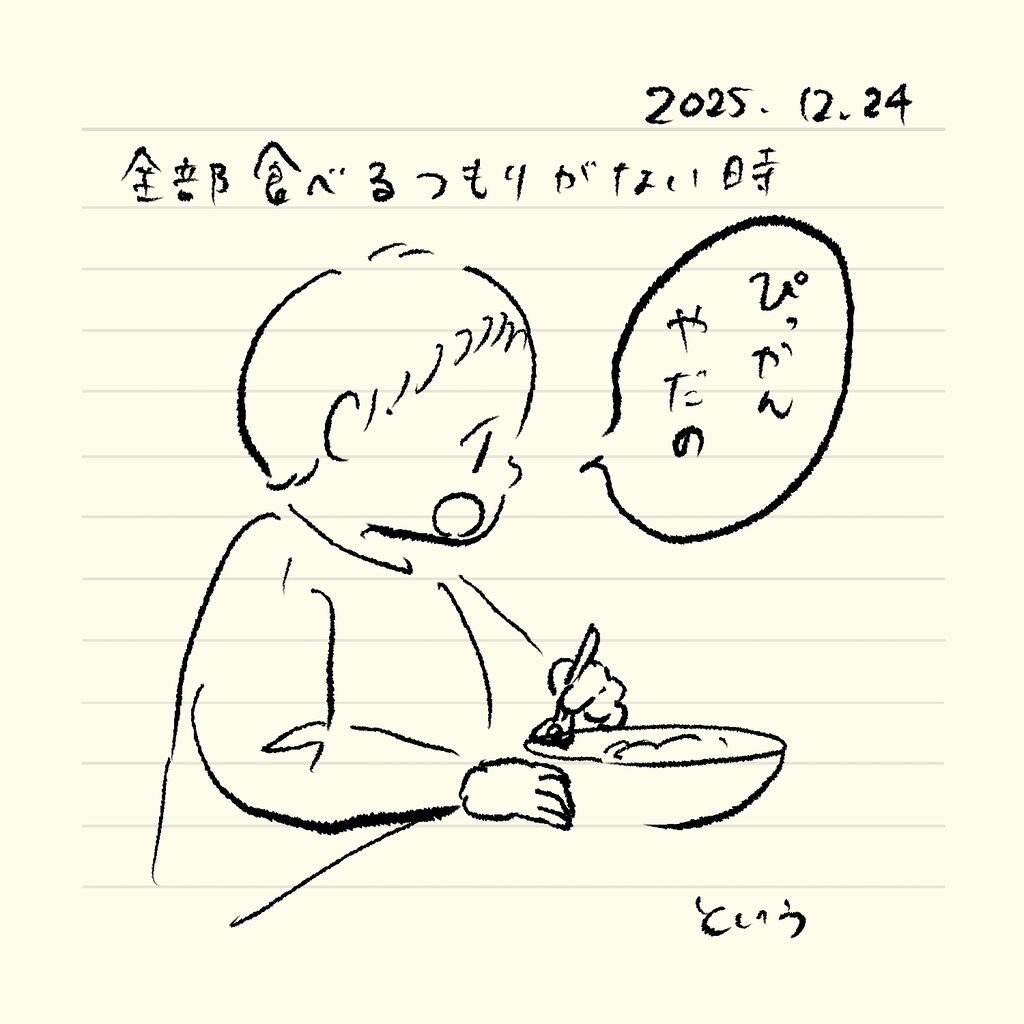 2025.12.24
全部食べるつもりがない時
ぴっかん
やだの
という